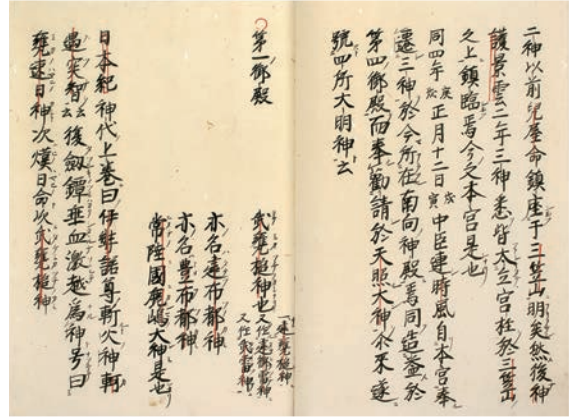 二神以前兒屋命鎮座于三笠山明矣然後神
護景雲二年三神悉皆太立宮柱於三笠山
之上鎮臨焉今之本宮是也
同四年庚戌正月十二日戊寅中臣連時風自本宮奉
遷三神於今所在南向神殿焉同造益於
第四御殿而奉勸請於天照大神於是遂
號四所大明神云
第一御殿
武甕槌神也
一速甕槌神
又作建御雷神
又作武雷神
亦名建布都神
亦名豊布都神
常陸國鹿嶋大神是也
日本紀神代上巻曰伊弉諾尊斬火神軻
遇突智云後劔鐔垂血激越為神号曰
甕速日神次熯日命次武甕槌神